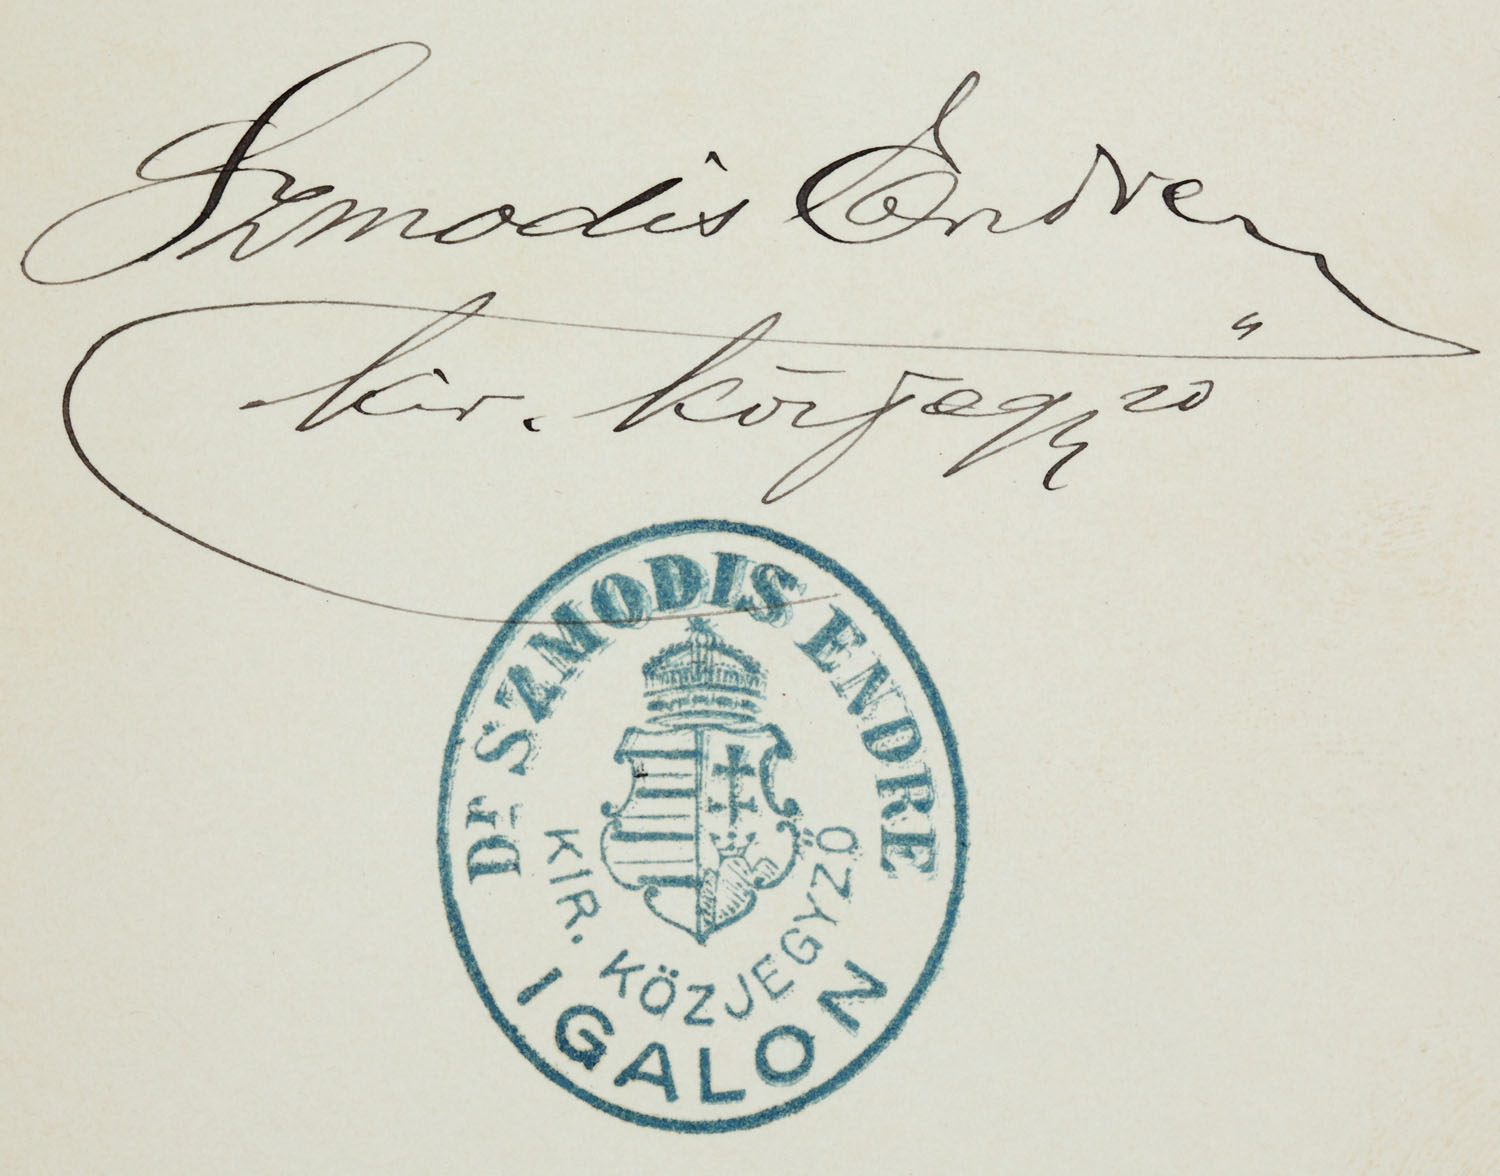 Szmodis Endre
kir. közjegyző
Dr SZMODIS ENDRE
KIR. KÖZJEGYZŐ
IGALON